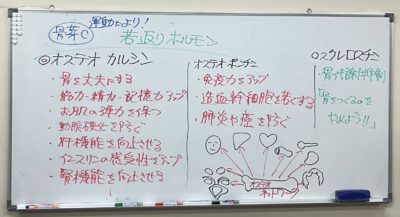 骨芽C
運動により!
若返りホルモン
◎オステオカルシン
・骨を丈夫にする
・筋力・精力・記憶力アップ
・お肌の弾力を保つ
・動脈硬化を防ぐ
・肝機能を向上させる
・インスリンの感受性をアップ
・腎機能を向上させる
オステオポンチン
・免疫力をアップ
・造血幹細胞を若くする
・肺炎や癌を防ぐ
オステオ
ネットワーク
○スクレロスチン
「骨をつくるのを
やめよう!!」